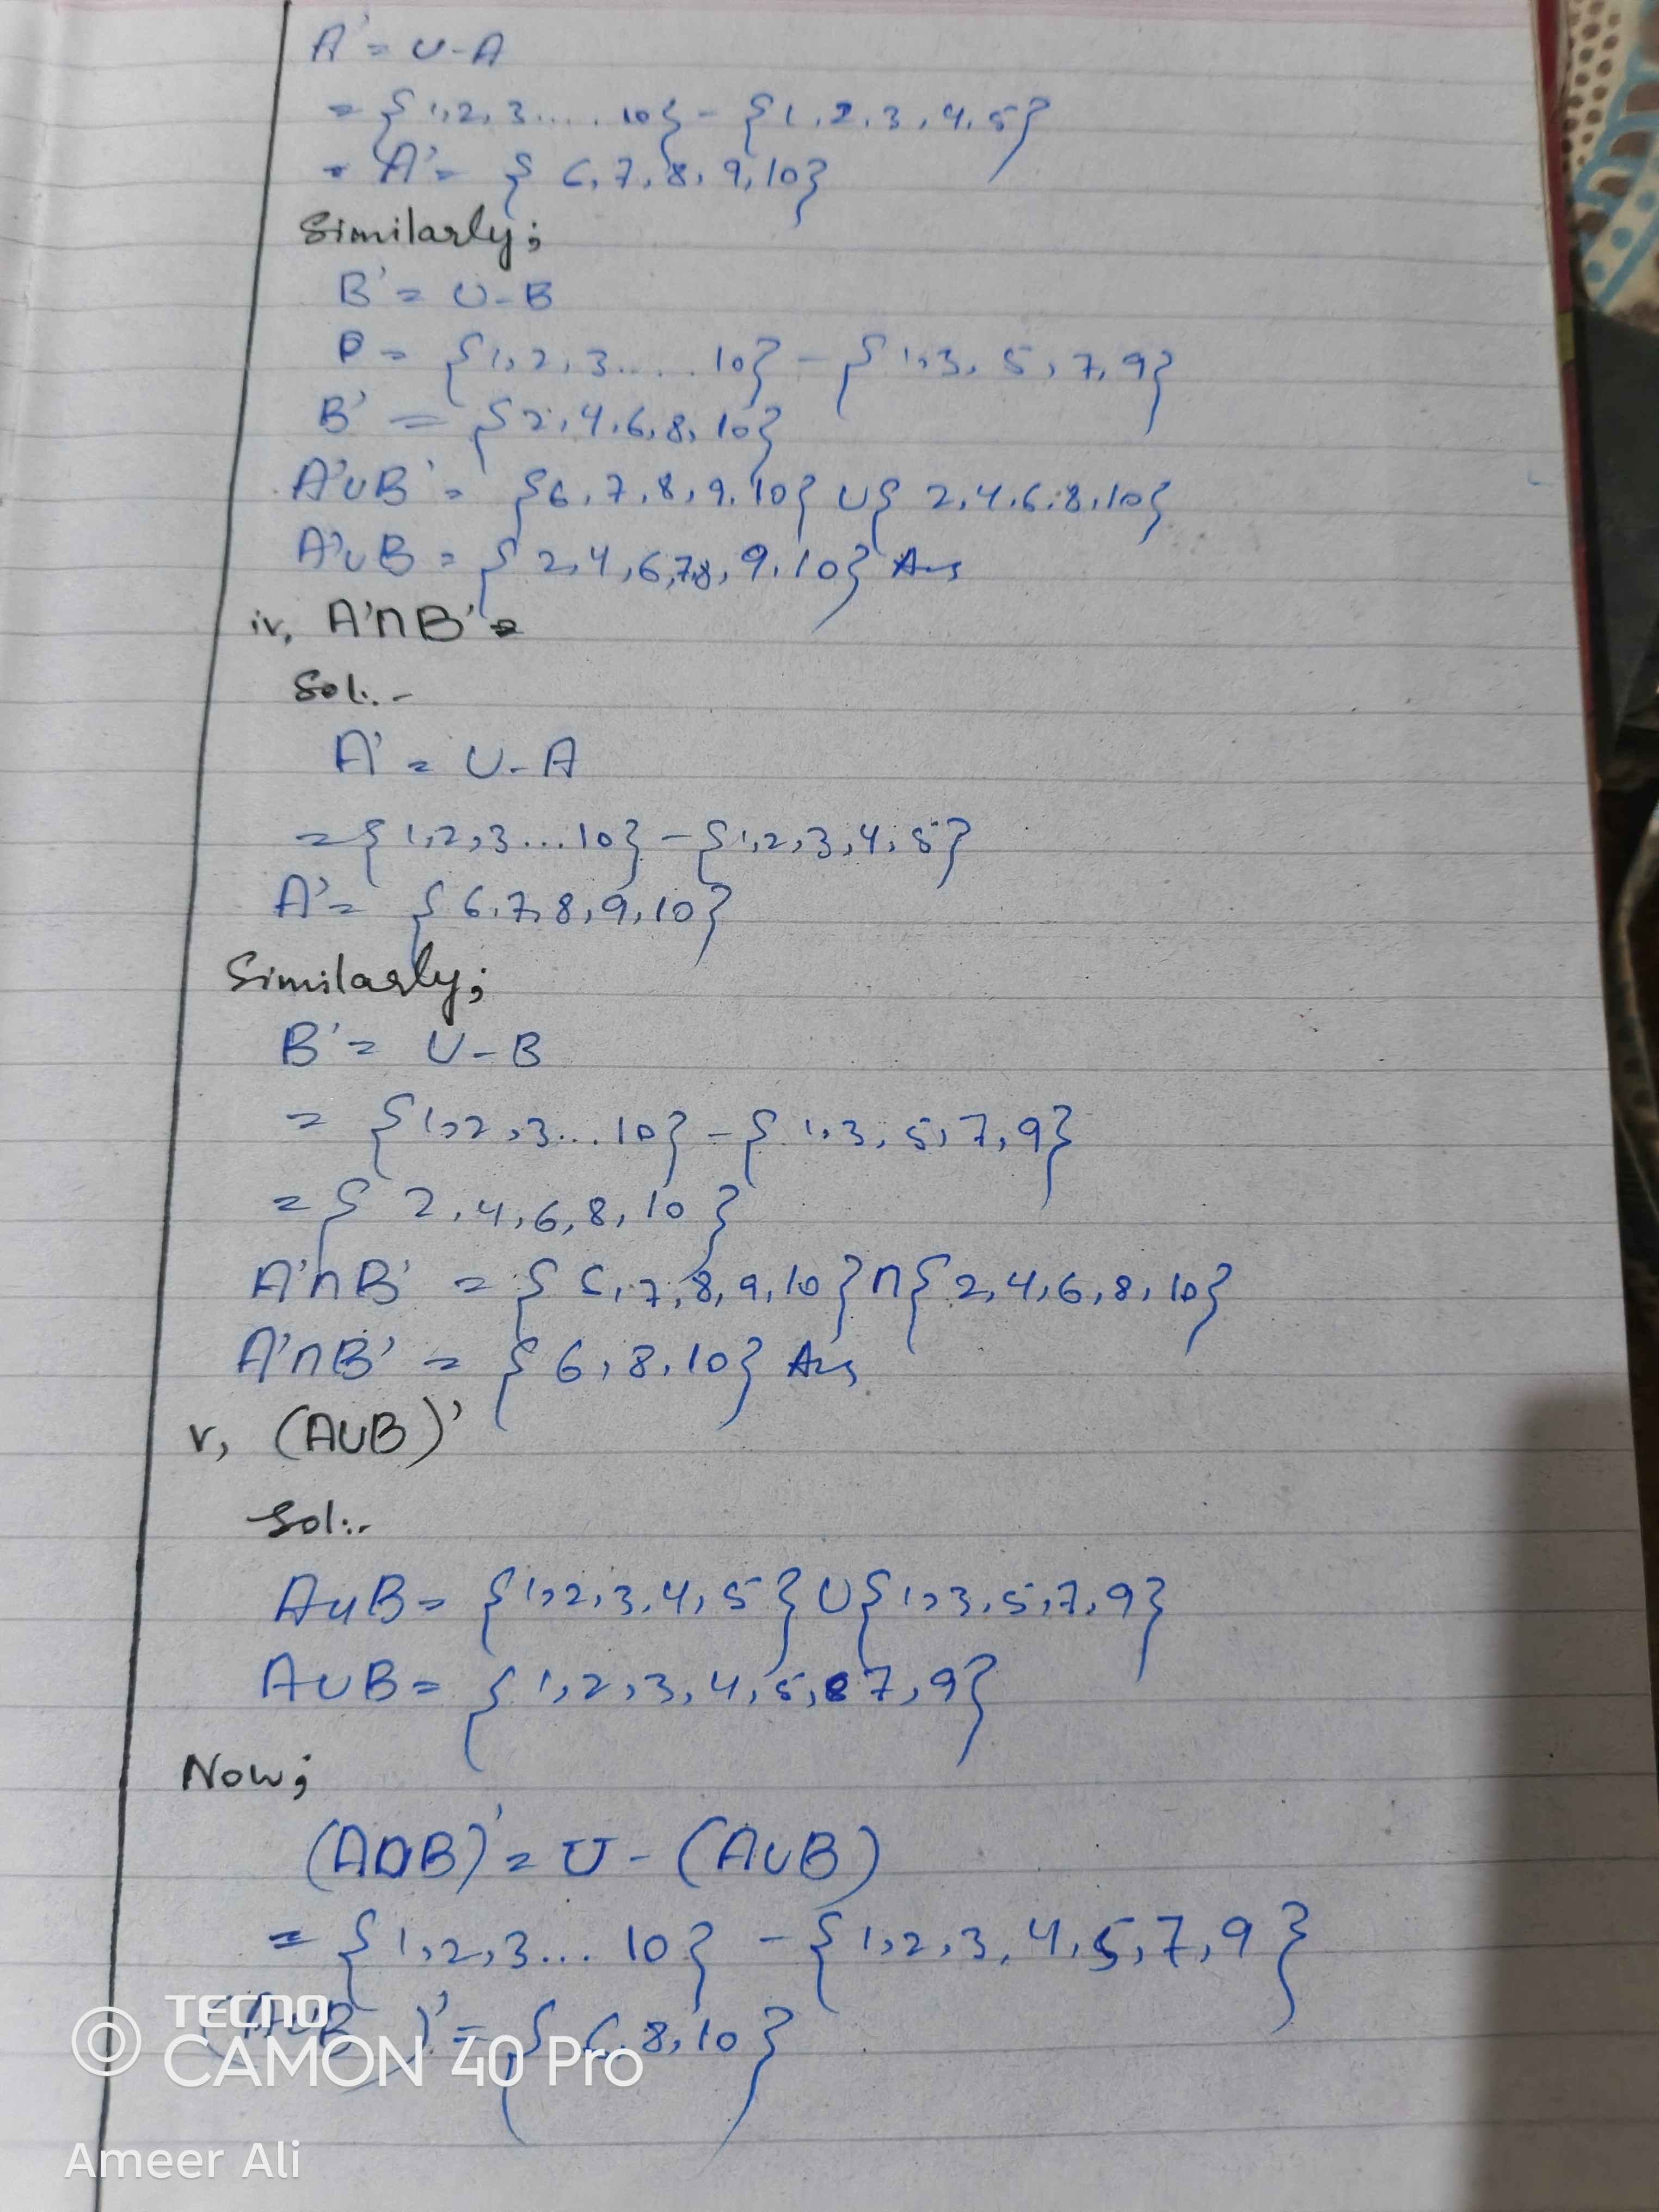 A' = U - A
= {1,2,3.....10} - {1,2,3,4,5}
= A' = {6,7,8,9,10}
Similarly;
B' = U - B
= {1,2,3.....10} - {1,3,5,7,9}
B' = {2,4,6,8,10}
A'∪B' = {6,7,8,9,10} ∪ {2,4,6,8,10}
A'∪B = {2,4,6,7,8,9,10} Ans
iv, A'∩B' =
Sol:-
A' = U - A
= {1,2,3...10} - {1,2,3,4,5}
A' = {6,7,8,9,10}
Similarly;
B' = U - B
= {1,2,3...10} - {1,3,5,7,9}
= {2,4,6,8,10}
A'∩B' = {6,7,8,9,10} ∩ {2,4,6,8,10}
A'∩B' = {6,8,10} Ans
v, (A∪B)'
Sol:-
A∪B = {1,2,3,4,5} ∪ {1,3,5,7,9}
A∪B = {1,2,3,4,5,7,9}
Now;
(A∪B)' = U - (A∪B)
= {1,2,3...10} - {1,2,3,4,5,7,9}
(A∪B)' = {6,8,10}
TECNO
CAMON 40 Pro
Ameer Ali